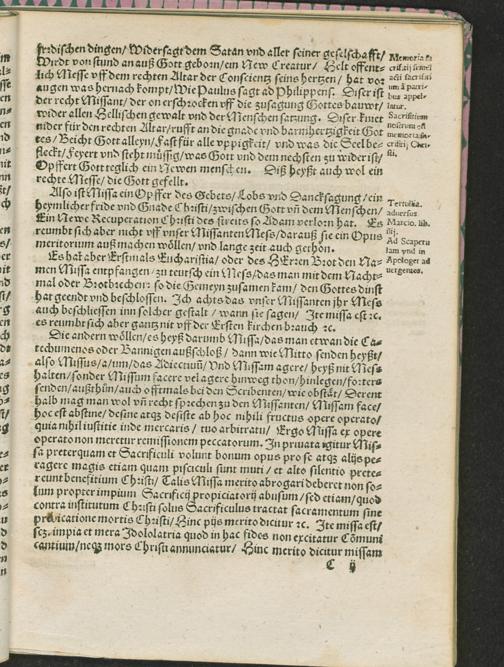 frdischen dingen/ Widersagt dem Satan vnd aller seiner geselschafft/
Wirdt von stund an auß Gott geborn/ ein New Creatur/ Helt offent-
lich Messe vff dem rechten Altar der Conscientz seins hertzen/ hat vor
augen was hernach kompt/ Wie Paulus sagt ad Philippens. Diser ist
der recht Missant/ der on erschrocken vff die zusagung Gottes bauwt/
wider allen Hellischen gewalt vnd der Menschen satzung. Diser kniet
nider für den rechten Altar/ rufft an die gnade vnd barmhertzigkeit Got
tes/ Beicht Gott alleyn/ Fast für alle vppigkeit/ vnd was die Seel be-
fleckt/ Feyert vnd steht müssig/ was Gott vnd dem nechsten zu wider ist/
Opffert Gott teglich ein Newen menschen. Diß heyßt auch wol ein
rechte Messe/ die Gott gefellt.
Also ist Missa ein Opffer des Gebets/ Lobs vnd Dancksagung/ ein
heymlicher fride vnd Gnade Christi/ zwischen Gott vñ dem Menschen/
Ein Newe Recuperation Christi des streits so Adam verlorn hat. Es
reumbt sich aber nicht vff vnser Missanten Mess/ darauß sie ein Opus
meritorum auß machen wöllen/ vnd lange zeit auch gethon.
Es hat aber Erstmals Eucharistia/ oder des HErren Brot den Na-
men Missa entpfangen/ zu teutsch ein Mess/ das man mit dem Nacht-
mal oder Brotbrechen: so die Gemeyn zusamen kam/ den Gottes dinst
hat geendt vnd beschlossen. Ich acht das vnser Missanten jhr Mess
auch beschliessen inn solcher gestalt/ wann sie sagen/ Ite missa est ꝛc.
es reumbt sich aber gantz nit vff der Ersten kirchen brauch ꝛc.
Die andern wöllen/ es heyß darumb Missa/ das man etwan die Ca-
techumenos oder Bannigen außschloß/ dann wie Mitto senden heyßt/
also Missus/a/um/ das Adiectiuũ/ Vnd Missam agere/ heyßt nit Mess
halten/ sonder Missum facere vel agere hinweg thon/ hinlegen/ forters
senden/ außthůn/ auch offtmals bei den Scribenten/ wie obstat/ Derent
halb mag man wol vñ recht sprechen zu den Missanten/ Missam face/
hoc est abstine/ desine atqꝫ desiste ab hoc nihili fructus opere operato/
quia nihil iustitie inde mercaris/ tuo arbitratu/ Ergo Missa ex opere
operato non meretur remissionem peccatorum. In priuata igitur Mis-
sa preterquam et Sacrificuli volunt bonum opus pro se atqꝫ alijs pe-
ragere magis etiam quam pisciculi sunt muti/ et alto silentio prete-
reunt benefitium Christi/ Talis Missa merito abrogari deberet non so-
lum propter impium Sacrificij propiciatorij abusum/ sed etiam/ quod
contra institutum Christi solus Sacrificulus tractat sacramentum sine
predicatione mortis Christi/ Hinc pijs merito dicitur ꝛc. Ite missa est/
scꝫ. impia et mera Idololatria quod in hac fidos non excitatur Cõmuni
cantium/ necꝫ mors Christi annunciatur/ Hinc merito dicitur missam
C ij
Memoria sa
crificij
à patri-
bus appel-
latur.
Sacrificium
nostrum est
memoria sa-
crificij Chri-
sti.
Tertullia.
aduersus
Marcio. lib.
iiij.
Ad Scapu
lam vnd in
Apologet ad
uergentes.